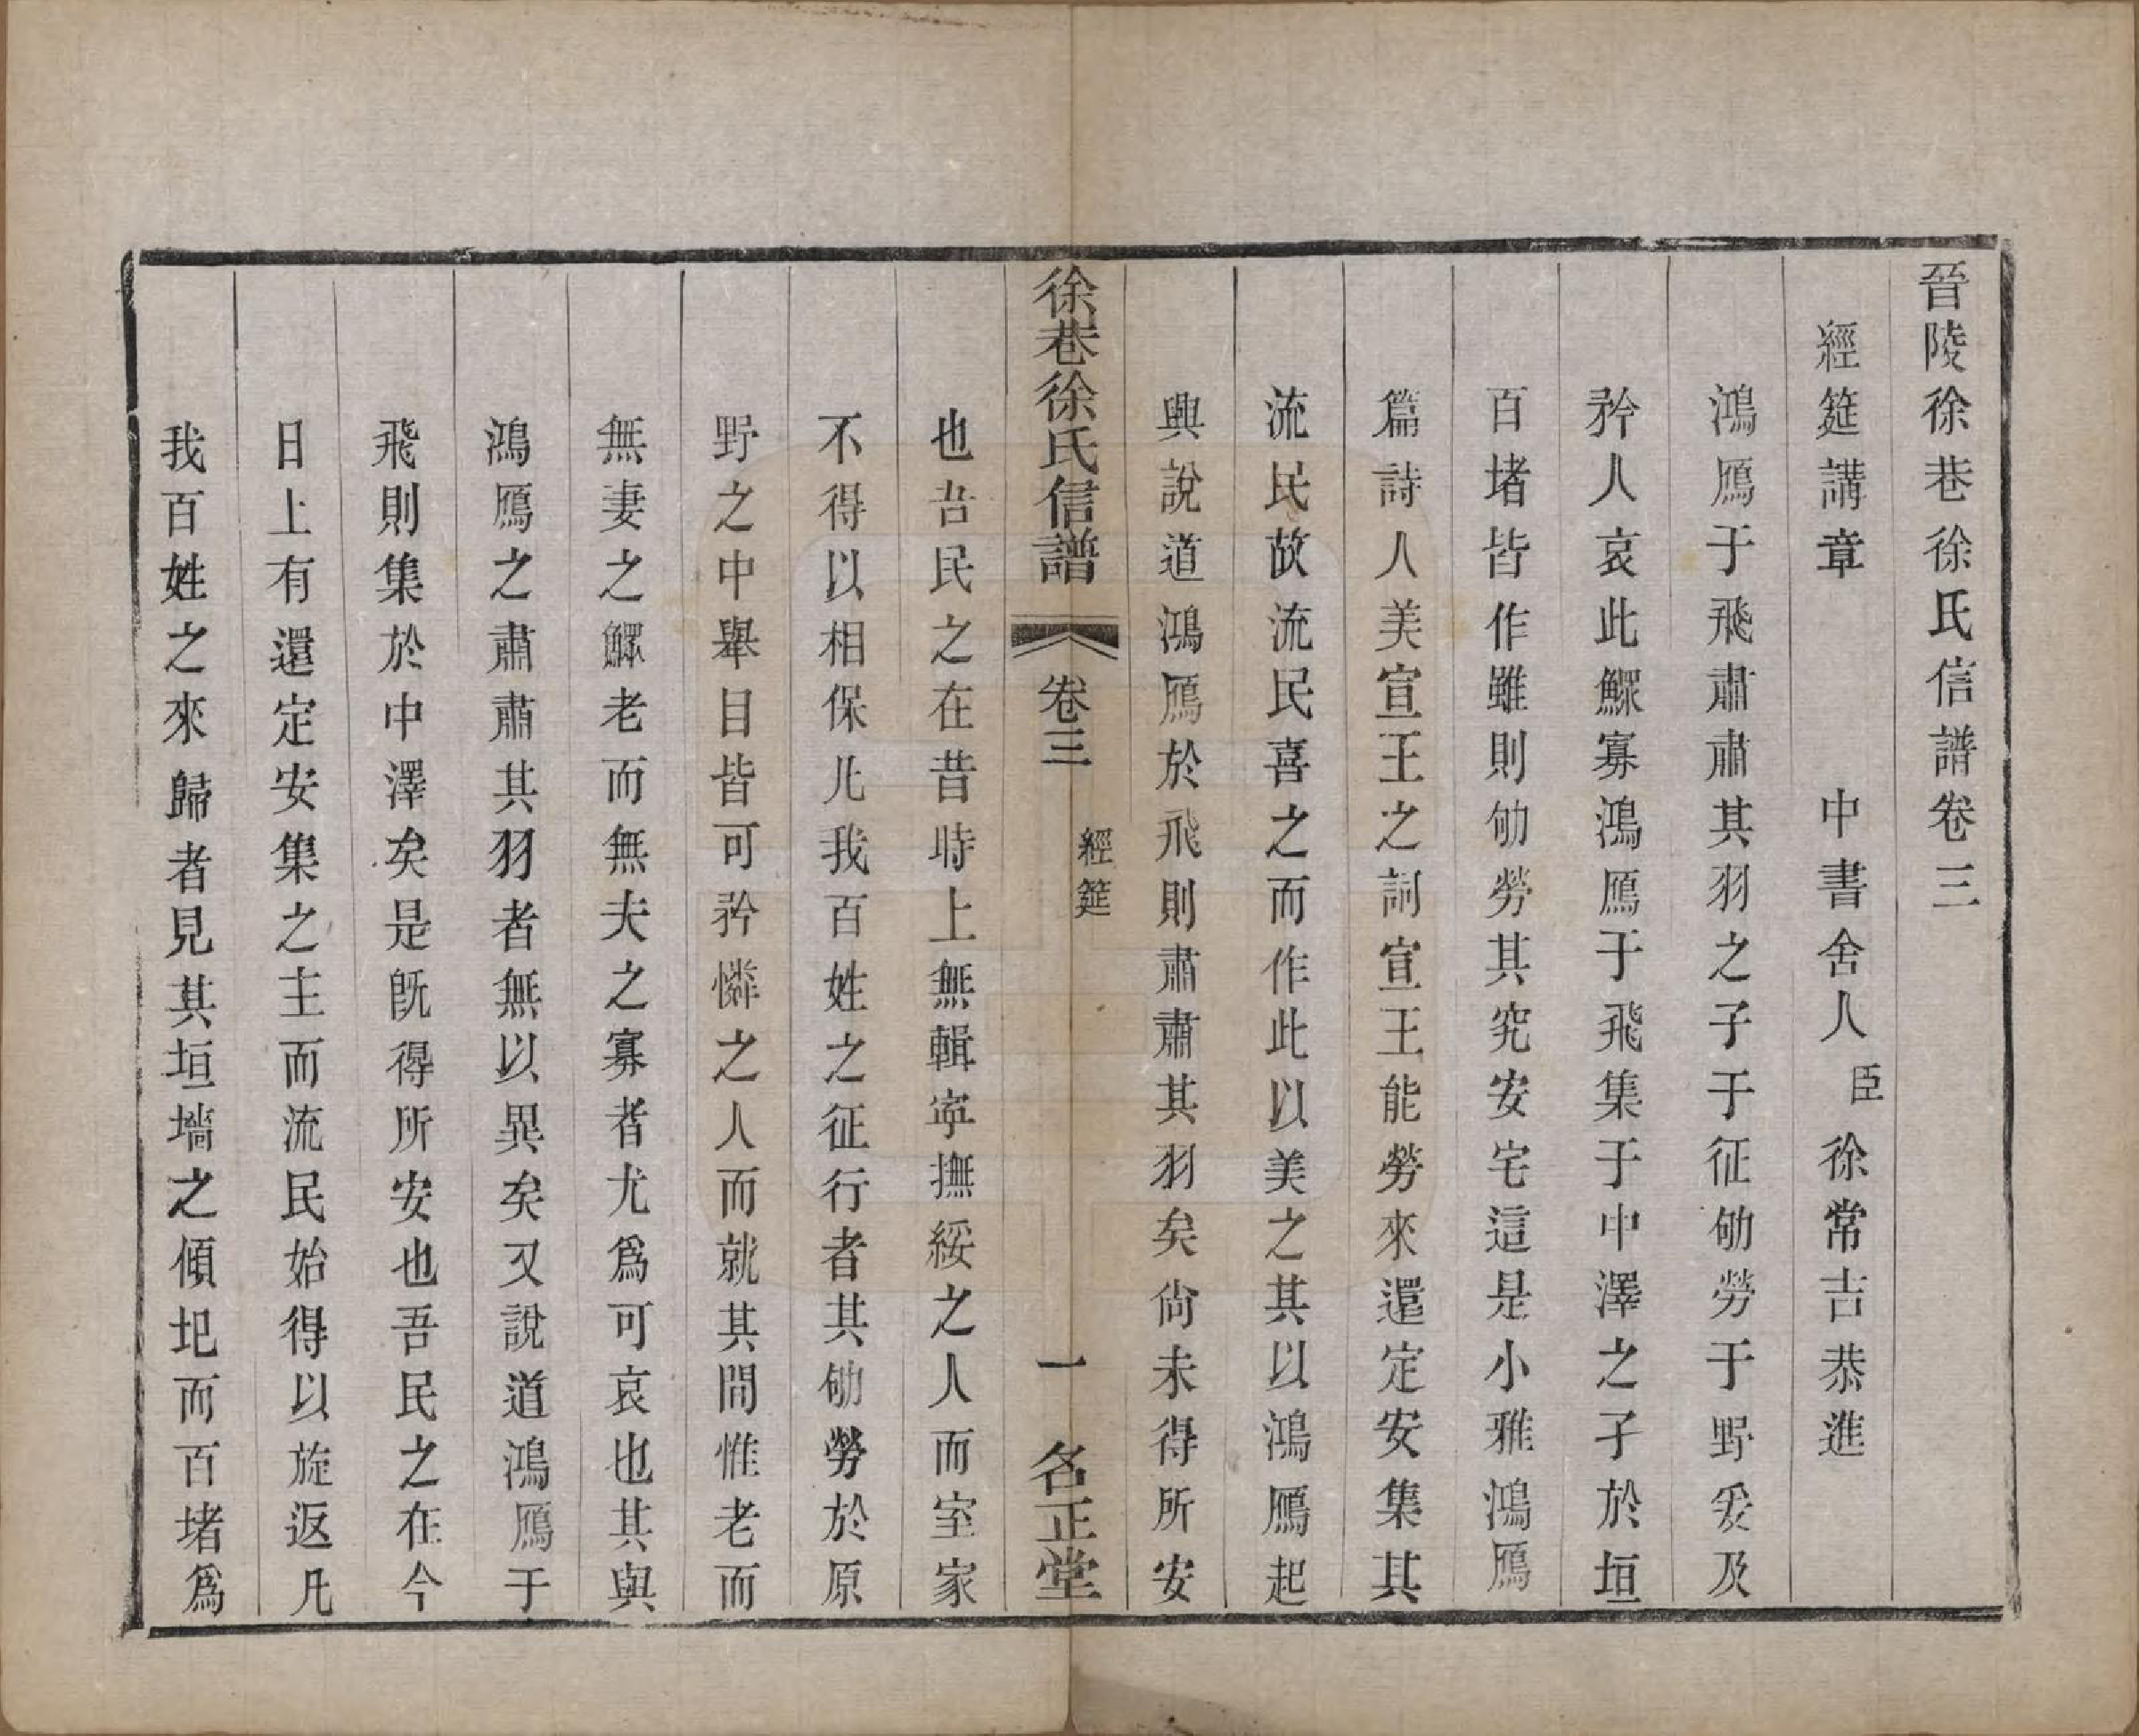 晉陵徐巷徐氏信譜卷三
經筵講章　中書舍人臣徐常吉恭進
鴻鴈于飛肅肅其羽之子于征劬勞于野爰及
矜人哀此鰥寡鴻鴈于飛集于中澤之子於垣
百堵皆作雖則劬勞其究安宅這是小雅鴻鴈
篇詩人美宣王之詞宣王能勞來還定安集其
流民故流民喜之而作此以美之其以鴻鴈起
興說道鴻鴈於飛則肅肅其羽矣尙未得所安
徐巷徐氏信譜　卷三　經筵　一　名正堂
也吾民之在昔時上無輯寧撫綏之人而室家
不得以相保凡我百姓之征行者其劬勞於原
野之中舉目皆可矜憐之人而就其間惟老而
無妻之鰥老而無夫之寡者尤爲可哀也其與
鴻鴈之肅肅其羽者無以異矣又說道鴻鴈于
飛則集於中澤矣是旣得所安也吾民之在今
日上有還定安集之主而流民始得以旋返凡
我百姓之來歸者見其垣墻之傾圯而百堵爲